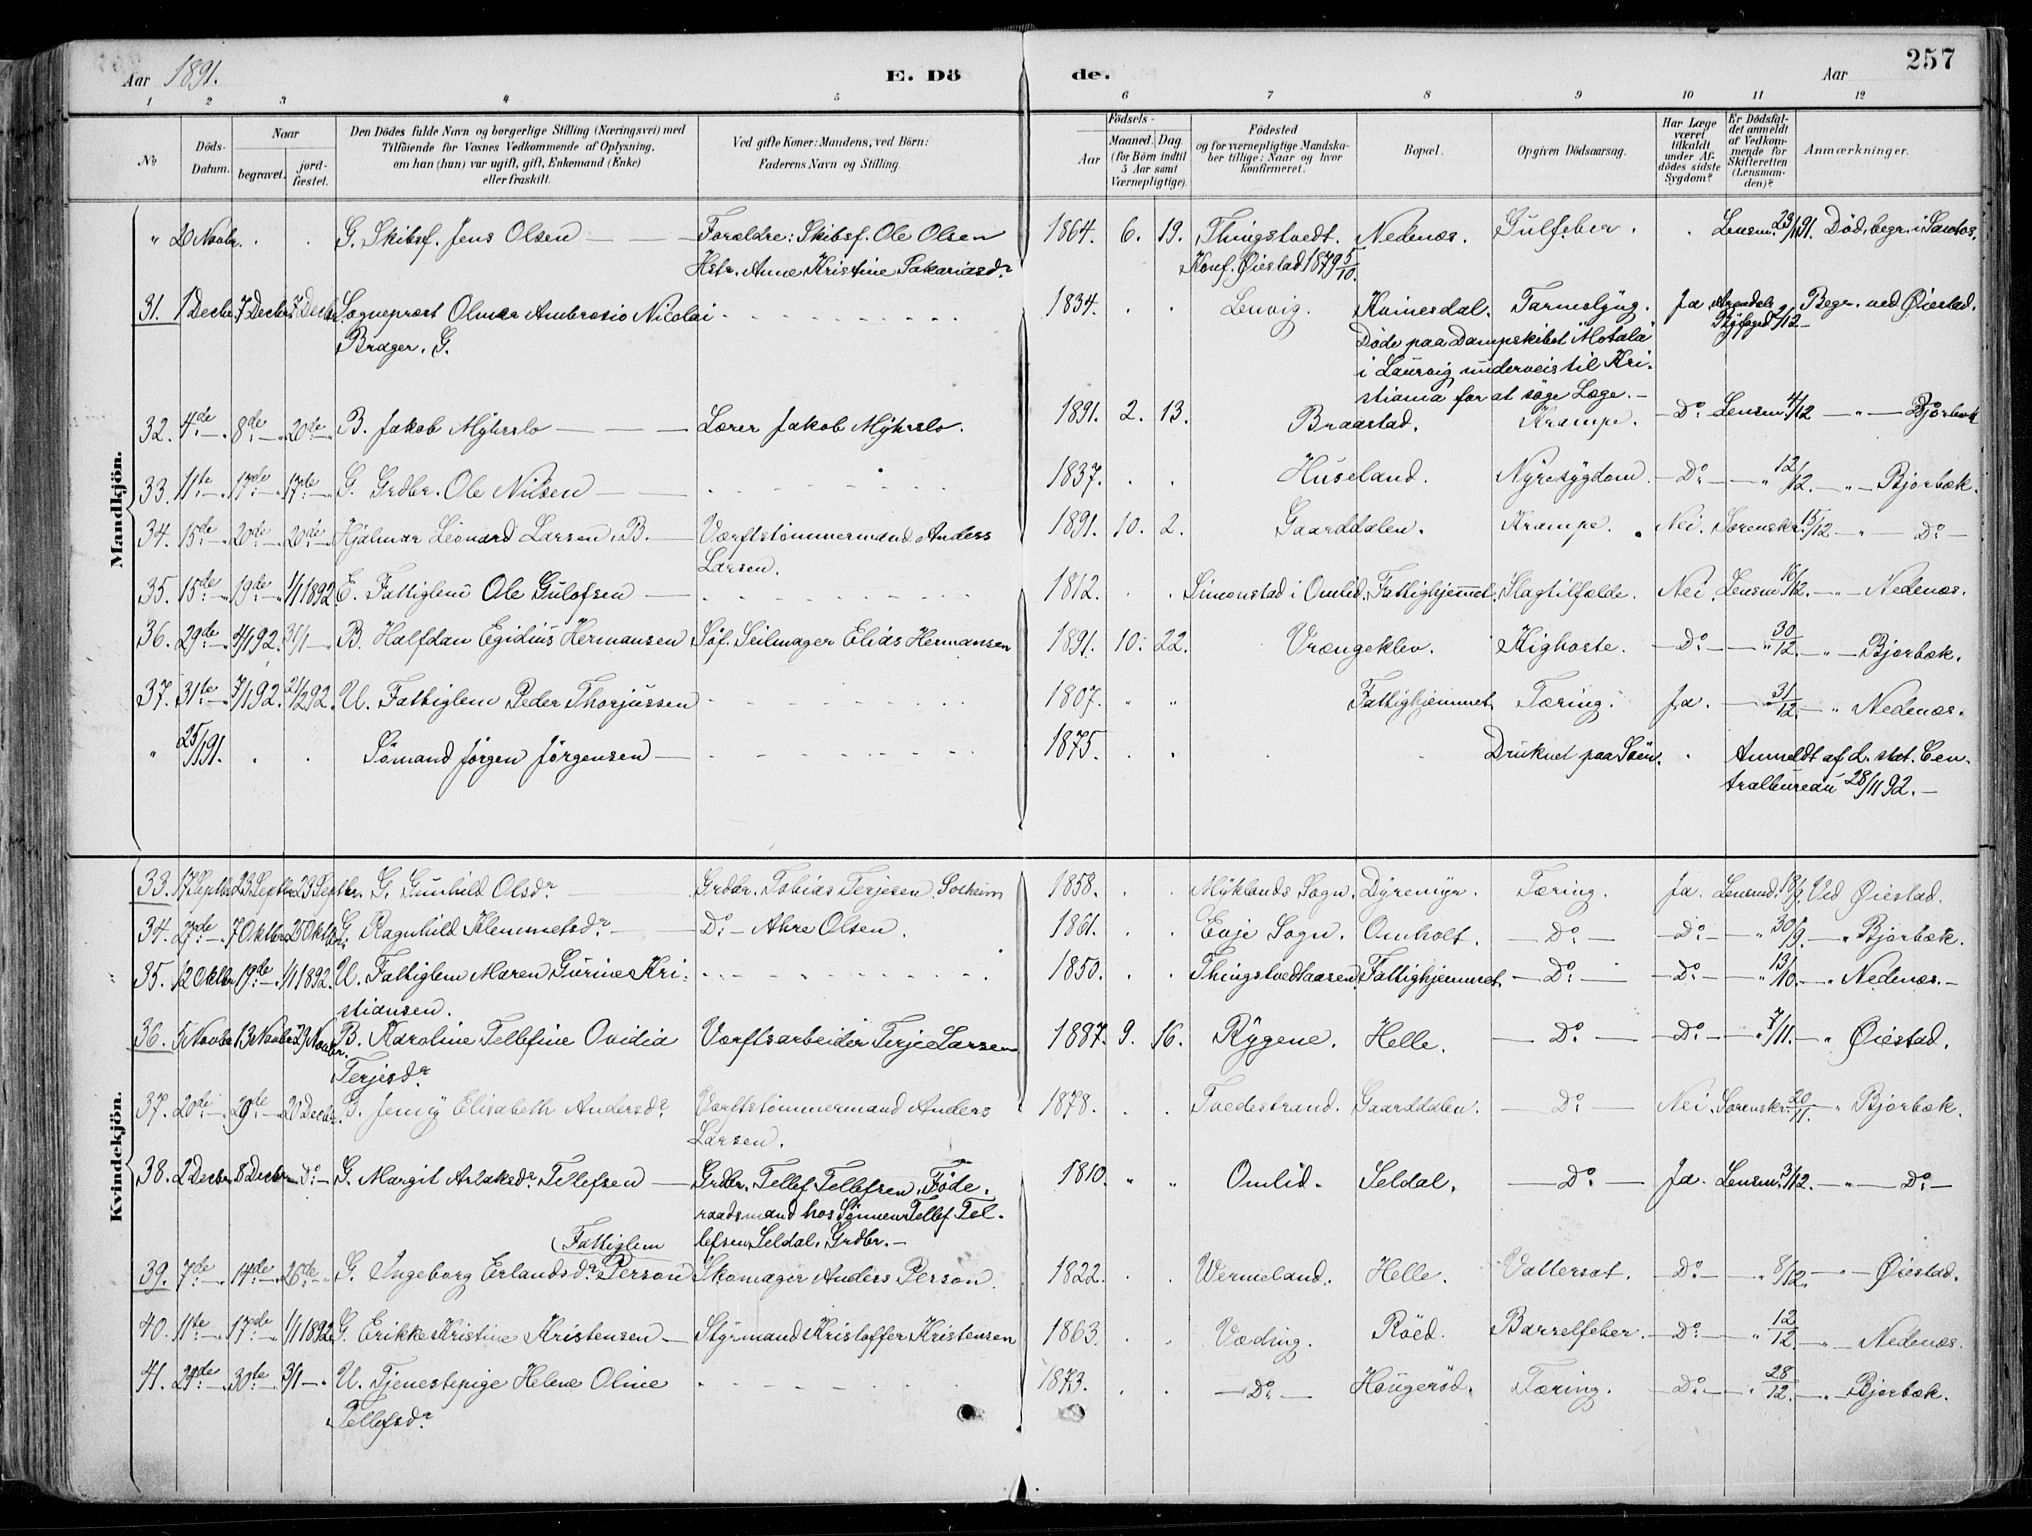 Aar 1891. E. Dö de. Aar 257
1 2 3 4 5 6 7 8 9 10 11 12
No
Döds-Datum.
Naar begravet. jordfæstet.
Den Dödes fulde Navn og borgerlige Stilling (Næringsvei) med
Tilföiende for Voxnes Vedkommende af Oplysning,
om han (hun) var ugift, gift, Enkemand (Enke)
eller fraskilt.
Ved gifte Koner: Mandens, ved Börn:
Faderens Navn og Stilling.
Födsels-
Aar Maaned. Dag.
(for Börn indtil
5 Aar samt
Værnepligtige).
Födested
og for værnepligtige Mandskaber tillige: Naar og hvor
konfirmeret.
Bopæl.
Opgiven Dödsaarsag.
Har Læge været tilkaldt under Afdödes sidste Sygdom?
Er Dödsfaldet anmeldt af Vedkommende for Skifteretten (Lensmanden)?
Anmærkninger.
Mandkjön.
" 20 Novbr. . . G. Skibsf. Jens Olsen — Forældre: Skibsf. Ole Olsen 1864. 6. 19. Thingstvedt. Nedenæs. Gulfeber. . Lensm. 23/1 91. Död, begr. i Santos.
Hstr. Anne Kristine Sakariasdr. Konf. Øiestad 1879 5/10.
31. 1 Decbr. 7 Decbr. 7 Decbr. Sogneprest Olmer Ambrosio Nicolai 1834. . . Lenvig. Kvinesdal. Tarmslyng. Ja. Arendals Byfoged 2/12 — Begr. ved Øiestad.
Brager. G. Döde paa Dampskibet "Motala"
i Laurvig underveis til Kri-
stiania for at söge Læge. —
32. 4de 8de 20de B. Jakob Myhrslo — Lærer Jakob Myhrslo. 1891. 2. 13. Braastad. Krampe. Do. Lensm. 4/12 — " — Bjorbæk
33. 11te 17de 17de G. Grdbr. Ole Nilsen — 1837. . . Huseland. Nyresygdom — Do. — " 12/12. — " — Bjorbæk.
34. 15de 20de 20de Hjalmar Leonard Larsen. B. — Værftstømmermand Anders 1891. 10. 2. Gaarddalen. Krampe. Nei. Sorenskr. 15/12 — " — Do. —
Larsen.
35. 15de 19de 1/1 1892. E. Fattiglem Ole Gulofsen — 1812. . . Simonstad i Omlid. Fattighjemmet. Slagtilfælde. Nei. Lensm. 16/12. — " — Nedenæs.
36. 29de 4/1 92. 31/1 — B. Halfdan Egidius Hermansen Söf. Seilmager Elias Hermansen 1891. 10. 22. Vrængeklev. Kighoste. — Do. — " 30/12. — " — Bjorbæk.
37. 31te 7/1 92. 21/2 92. U. Fattiglem Peder Thorjussen 1807. " " Fattighjemmet. Tæring. Ja. — " 31/12. — " Nedenæs.
" 25/1 91. . . Sömand Jörgen Jörgensen — 1875. . . . . Druknet paa Söen. . Anmeldt af d. stat. Cen-
tralbureau 28/11 92. —
Kvindekjön.
33. 17 Septbr. 23 Septbr. 23 Septbr. G. Gunhild Olsdr. — Grdbr. Tobias Terjesen Solheim 1858. . . Myklands Sogn. Dyremyr. Tæring. Ja. Lensmd. 18/9. Ved Øiestad.
34. 27de 7 Oktbr. 25 Oktbr. G. Ragnhild Klemmetsdr. — Do. — Ahre Olsen. 1861. . . Evje Sogn. Omholt. — Do. — — Do. — " 30/9. — " Bjorbæk.
35. 12 Oktbr. 19de 1/1 1892. U. Fattiglem Maren Gurine Kri- 1850. . . Thingstvedtaasen. Fattighjemmet. — Do. — — Do. — " 13/10. — " Nedenæs. —
stiansen.
36. 5 Novbr. 13 Novbr. 29 Novbr. B. Karoline Tellefine Ovidia Værftsarbeider Terje Larsen 1887. 9. 16. Rygene. Helle. — Do. — — Do. — " 7/11. — " Øiestad.
Terjesdr.
37. 20de 29de 20 Decbr. B. Jenny Elisabeth Andersdr. Værftstømmermand Anders 1878. . . Tvedestrand. Gaarddalen. — Do. — Nei. Sorenskr. 20/11. — " Bjorbæk.
Larsen.
38. 2 Decbr. 8 Decbr. Do. — G. Margit Aslaksdr. Tellefsen — Grdbr. Tellef Tellefsen. Föde- 1810. " " Omlid. Seldal. — Do. — Ja. Lensm. 3/12. — " — Do. —
raadsmand hos Sönnen Tellef Tel-
lefsen Seldal. Grdbr. —
(Fattiglem
39. 7de 14de 26de G. Ingeborg Erlandsdr. Person Skomager Anders Person. 1822. . . Wermeland. Helle. Vattersot. — Do. — " 8/12. — " — Øiestad.
40. 11te 17de 1/1 1892. G. Erikke Kristine Kristensen — Styrmand Kristoffer Kristensen 1863. . . Væding. Röed. Barselfeber. — Do. — " 12/12. — " Nedenæs.
41. 24de 30te 3/1 — U. Tjenestepige Helene Oline 1873. . . — Do. — Haugeröd. Tæring. — Do. — " 28/12. — " Bjorbæk.
Tellefsdr.